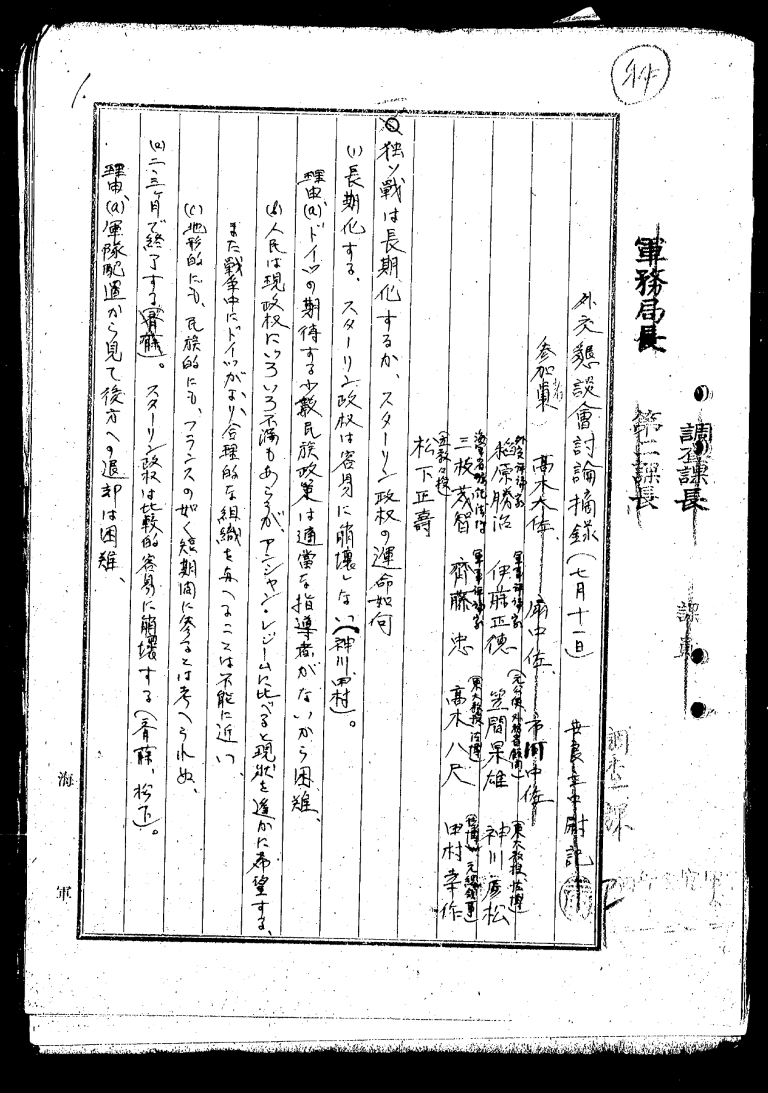 調査課長
課員
軍務局長
第二課長
外交懇談會討論摘録(七月十一日)
中尉記
参加者
高木大佐、
中佐、
中佐
外交評論家
稻原勝治
軍事評論家
伊藤正徳
笠間杲雄
(東大教授、法博)
神川彦松
三枝茂智
軍事評論家
齊藤忠
(東大教授法博)
高木八尺
元總領事
田村幸作
(立教教授)
松下正壽
独ソ戰は長期化するか、スターリン政权の運命如何
(1)長期化する、スターリン政权は容易に崩壊しない(神川、田村)。
理由(a)ドイツの期待する少数民族政策は適當な指導者がないから困難、
(b)人民は現政权にいろいろ不満もあらうが、アンシャン・レジームに比べると現状を遙かに希望する、
また戰争中にドイツがより合理的な組織を与へることは不能に近い、
(c)地形的にも、民族的にも、フランスの如く短期間に参るとは考へられぬ、
(2)二、三ヶ月で終了する(齊藤)。スターリン政权は比較的容易に崩壊する(齊藤、松下)。
理由(a)軍隊配置から見て後方への退却は困難、
海軍
1.